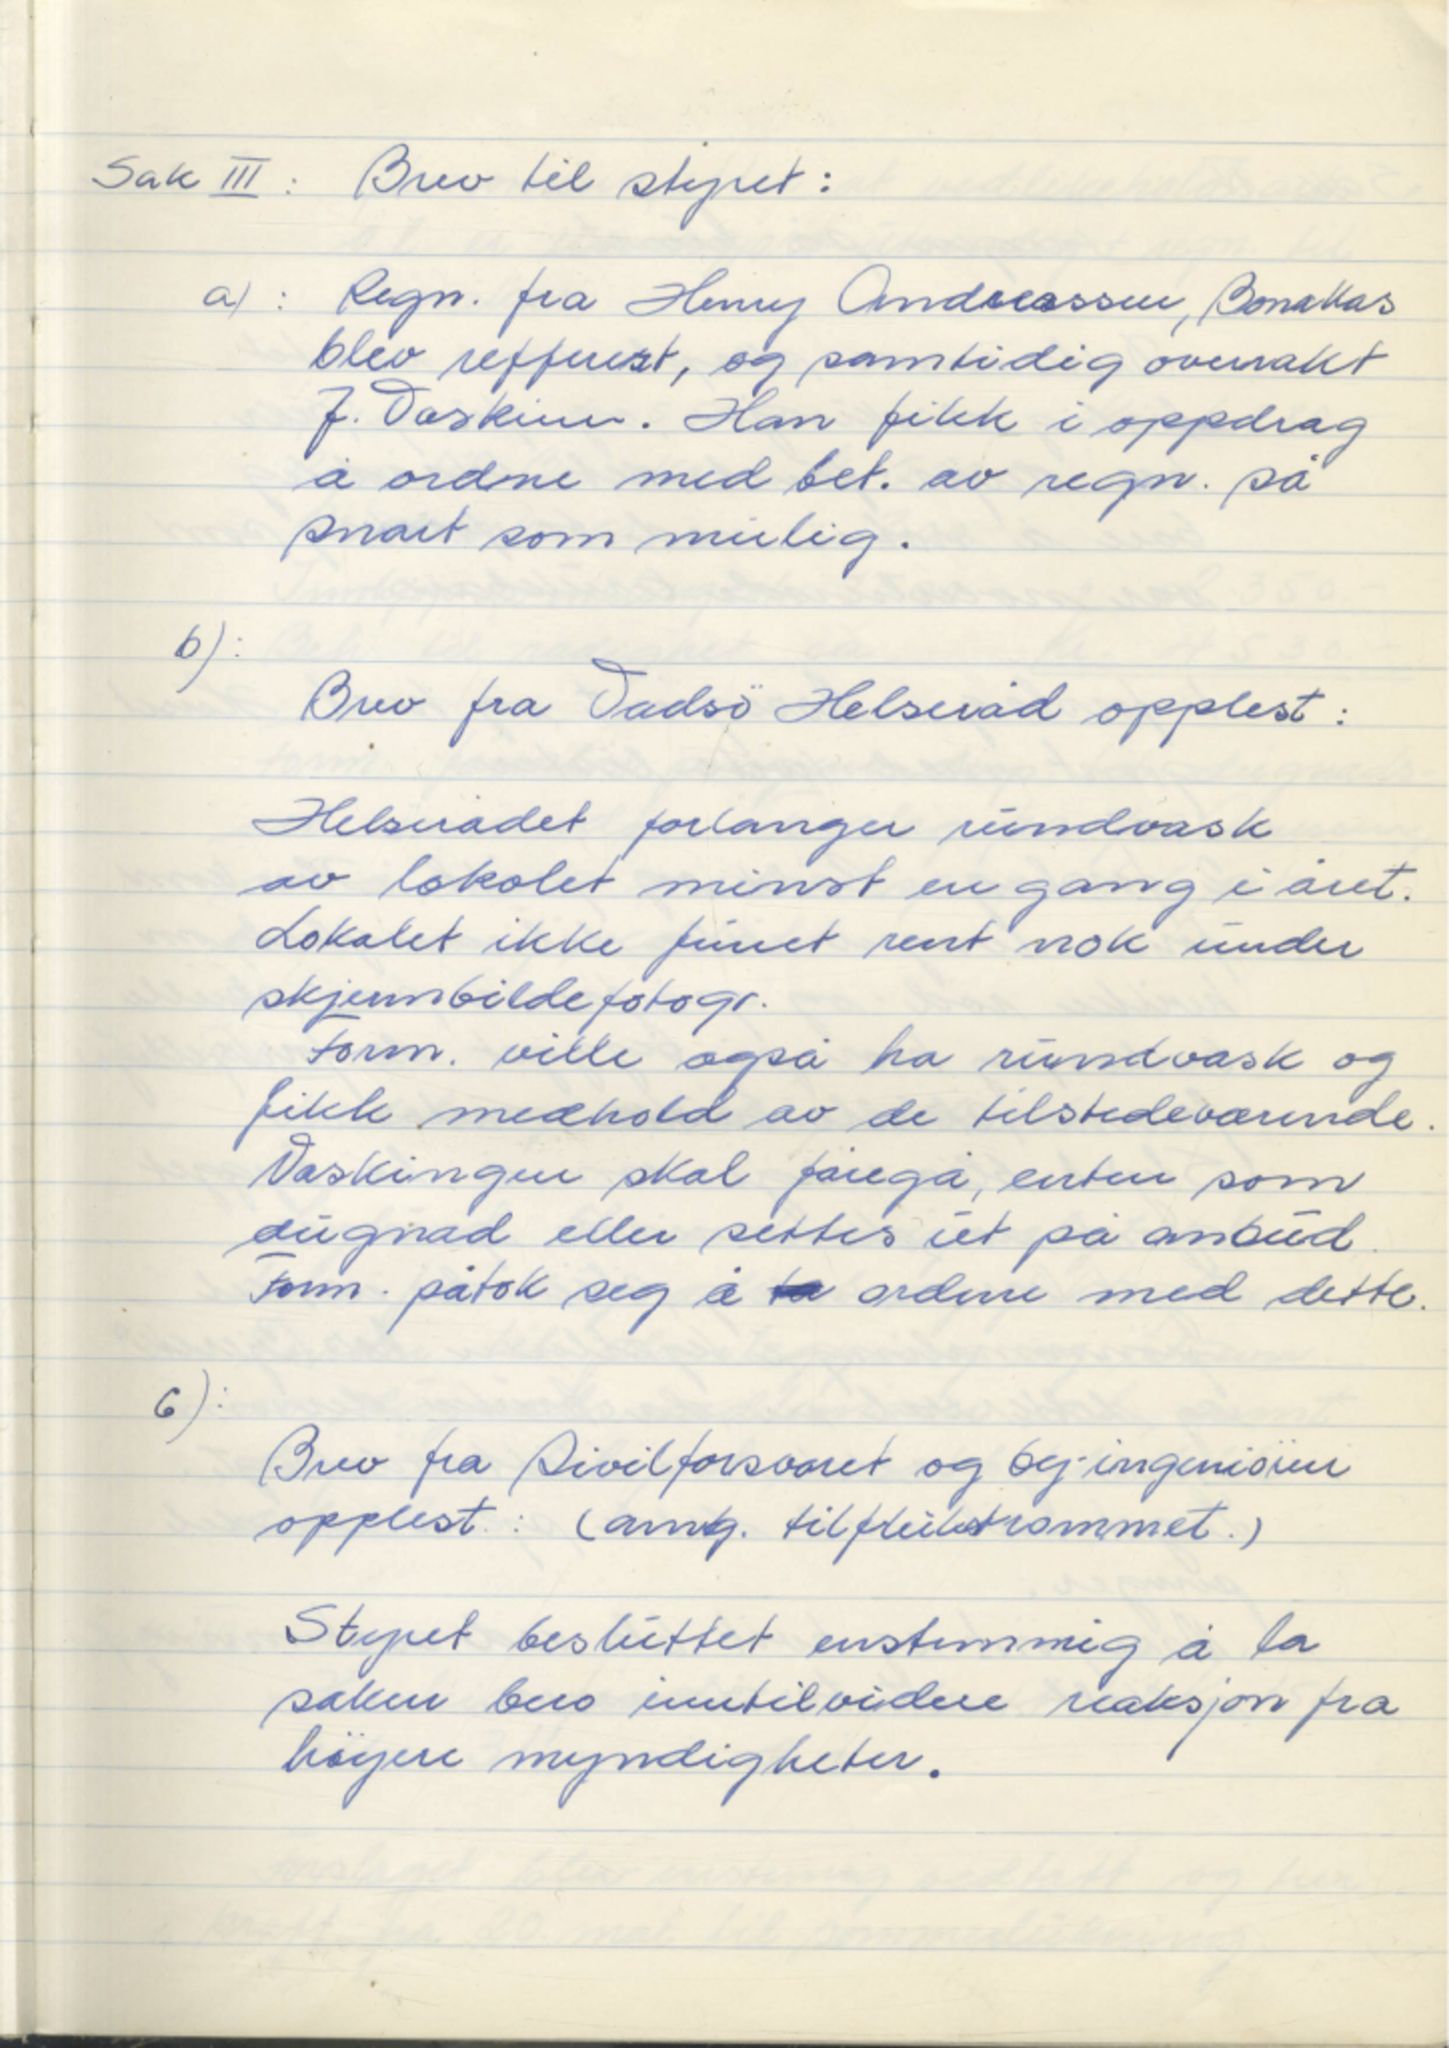 Sak III: Brev til styret:
a): Regn. fra Henry Andreassen, Bonakas
blev refferert, og samtidig overrakt
J. Vaskinn. Han fikk i oppdrag
å ordne med bet. av regn. så
snart som mulig.
b):
Brev fra Vadsö Helseråd opplest:
Helserådet forlanger rundvask
av lokalet minst en gang i året.
Lokalet ikke funnet rent nok under
skjermbildefotogr.
Form. ville også ha rundvask og
fikk medhold av de tilstedeværende.
Vaskingen skal foregå, enten som
dugnad eller settes ut på anbud.
Form. påtok seg å ordne med dette.
c):
Brev fra Sivilforsvaret og by-ingeniören
opplest: (ang. tilfluktsrommet.)
Styret besluttet enstemmig å la
saken bero inntil videre reaksjon fra
höyere myndigheter.